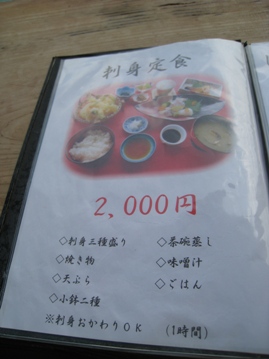 刺身定食
2,000円
◇刺身三種盛り ◇茶碗蒸し
◇焼き物 ◇味噌汁
◇天ぷら ◇ごはん
◇小鉢二種
※刺身おかわりOK (1時間)